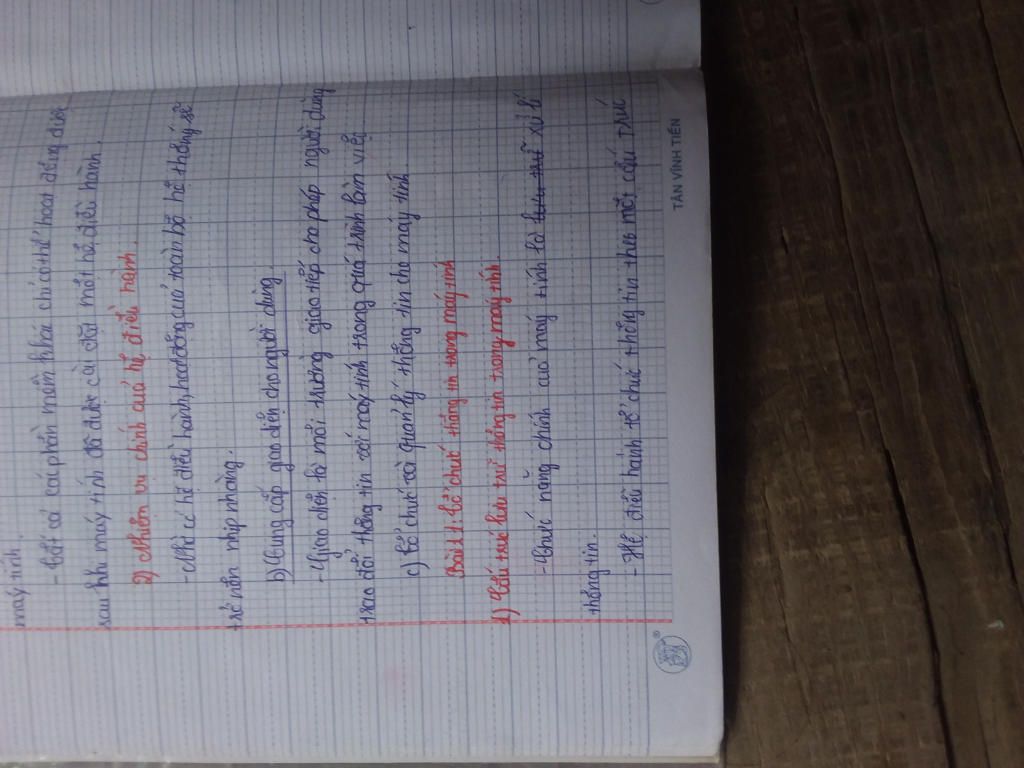 máy tính.
- Tất cả các phần mềm khác chỉ có thể hoạt động được
sau khi máy tính đã được cài đặt một hệ điều hành.
2) Nhiệm vụ chính của hệ điều hành.
- Nhờ có hệ điều hành, hoạt động của toàn bộ hệ thống sẽ
trở nên nhịp nhàng.
b) Cung cấp giao diện cho người dùng
- Giao diện là môi trường giao tiếp cho phép người dùng
trao đổi thông tin với máy tính trong quá trình làm việc
c) Tổ chức và quản lý thông tin cho máy tính
Bài 11: Tổ chức thông tin trong máy tính
1) Cấu trúc lưu trữ thông tin trong máy tính.
- Chức năng chính của máy tính là lưu trữ xử lí
thông tin.
- Hệ điều hành tổ chức thông tin theo một cấu trúc
TÂN VĨNH TIẾN